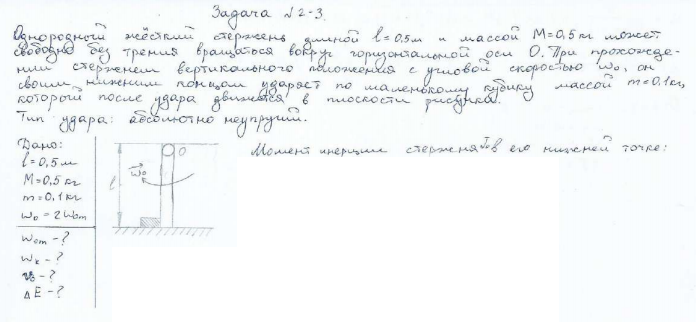 Задача №2-3.
Однородный жёсткий стержень длиной l=0.5м и массой M=0,5 кг может
свободно без трения вращаться вокруг горизонтальной оси О. При прохожде-
нии стержнем вертикального положения с угловой скоростью ω₀, он
своим нижним концом ударяет по маленькому кубику массой m=0.1кг,
который после удара движется в плоскости рисунка.
Тип удара: абсолютно неупругий.
Дано:
l=0,5м
M=0,5 кг
m=0,1 кг
ω₀=2ω₀m
ω₀m-?
ωк-?
-?
ΔE-?
l
ω₀
О
Момент инерции стержня I₀ в его нижней точке: